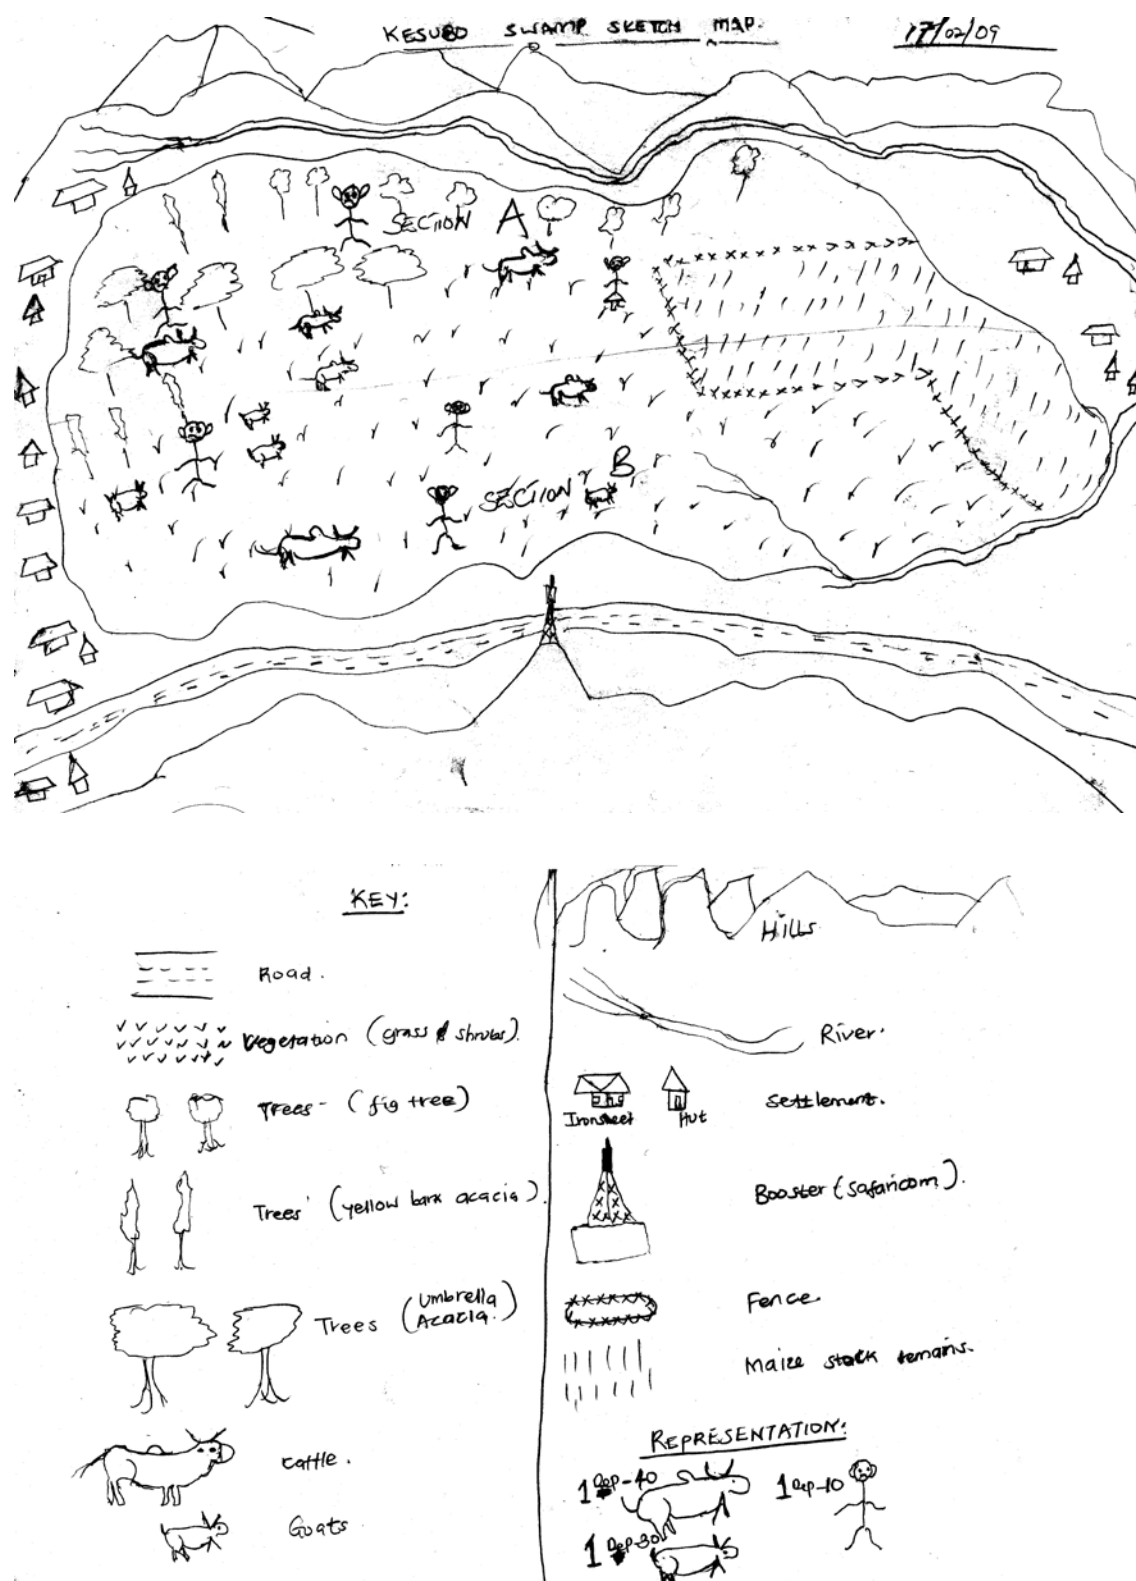 KESUBO SWAMP SKETCH MAP.
17/02/09
SECTION A
SECTION B
KEY:
Road.
Vegetation (grass & shrubs).
Trees - (fig tree)
Trees (yellow bark acacia).
Trees (Umbrella
Acacia.)
Cattle.
Goats
Hills
River.
Ironsheet
Hut
Settlement.
Booster (safaricom).
Fence.
Maize stock remains.
REPRESENTATION:
1 Rep-40
1 Rep-10
1 Rep-30